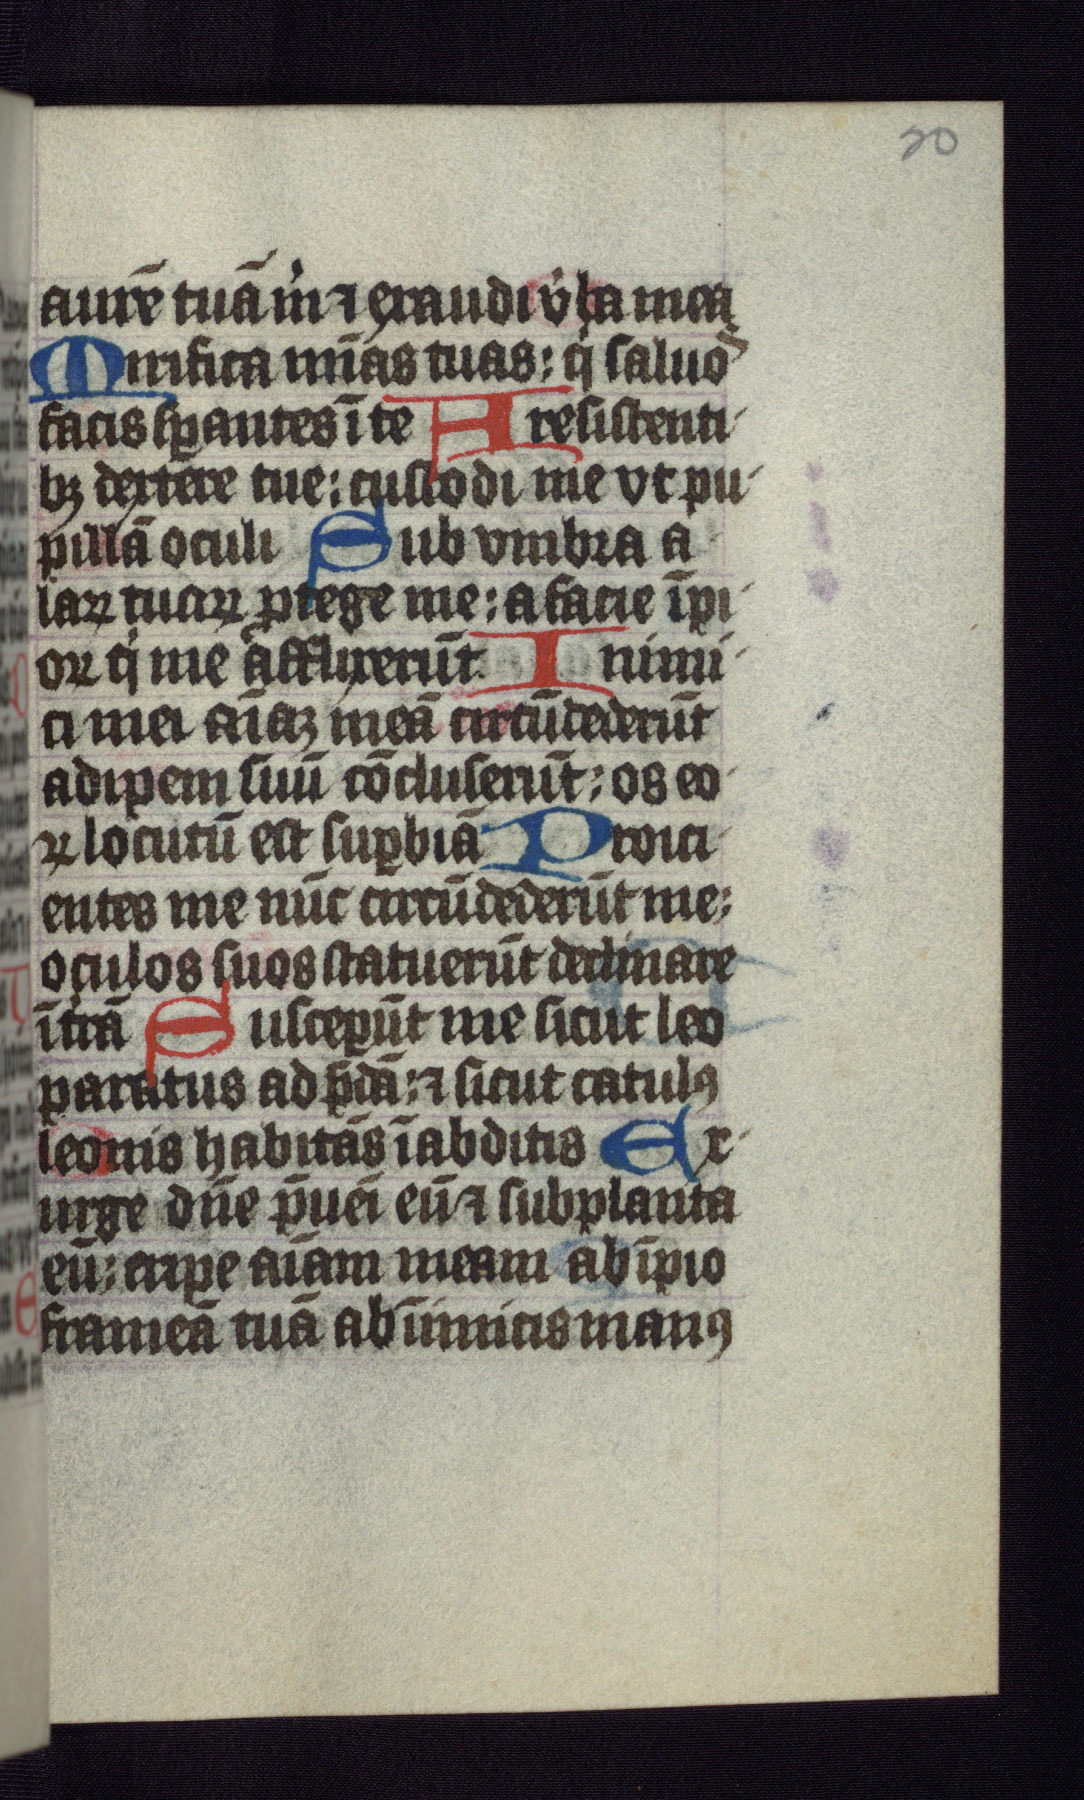 20
aurē tuā m̄ ⁊ exaudi v̾ba mea
Mirifica mīas tuas: q̇ saluos
facis sꝑantes ī te A resistenti-
bꝫ dextere tue: custodi me vt pu-
pillā oculi Sub vmbra a-
laꝝ tuaꝝ ꝓtege me: a facie īpi-
oꝝ q̇ me afflixerūt Inimi-
ci mei aīaꝫ meā circūdederūt
adipem suū cōcluserūt: os eo-
ꝝ locutū est suꝑbiā Proici-
entes me nūc circūdederūt me:
oculos suos statuerūt declinare
ī trā Susceperūt me sicut leo
paratus ad p̄dā: ⁊ sicut catulꝰ
leonis habitās ī abditis Ex-
urge dn̄e p̄uei eū ⁊ subplanta
eū: eripe aīam meam ab īpio
frameā tuā ab īimicis manꝰ